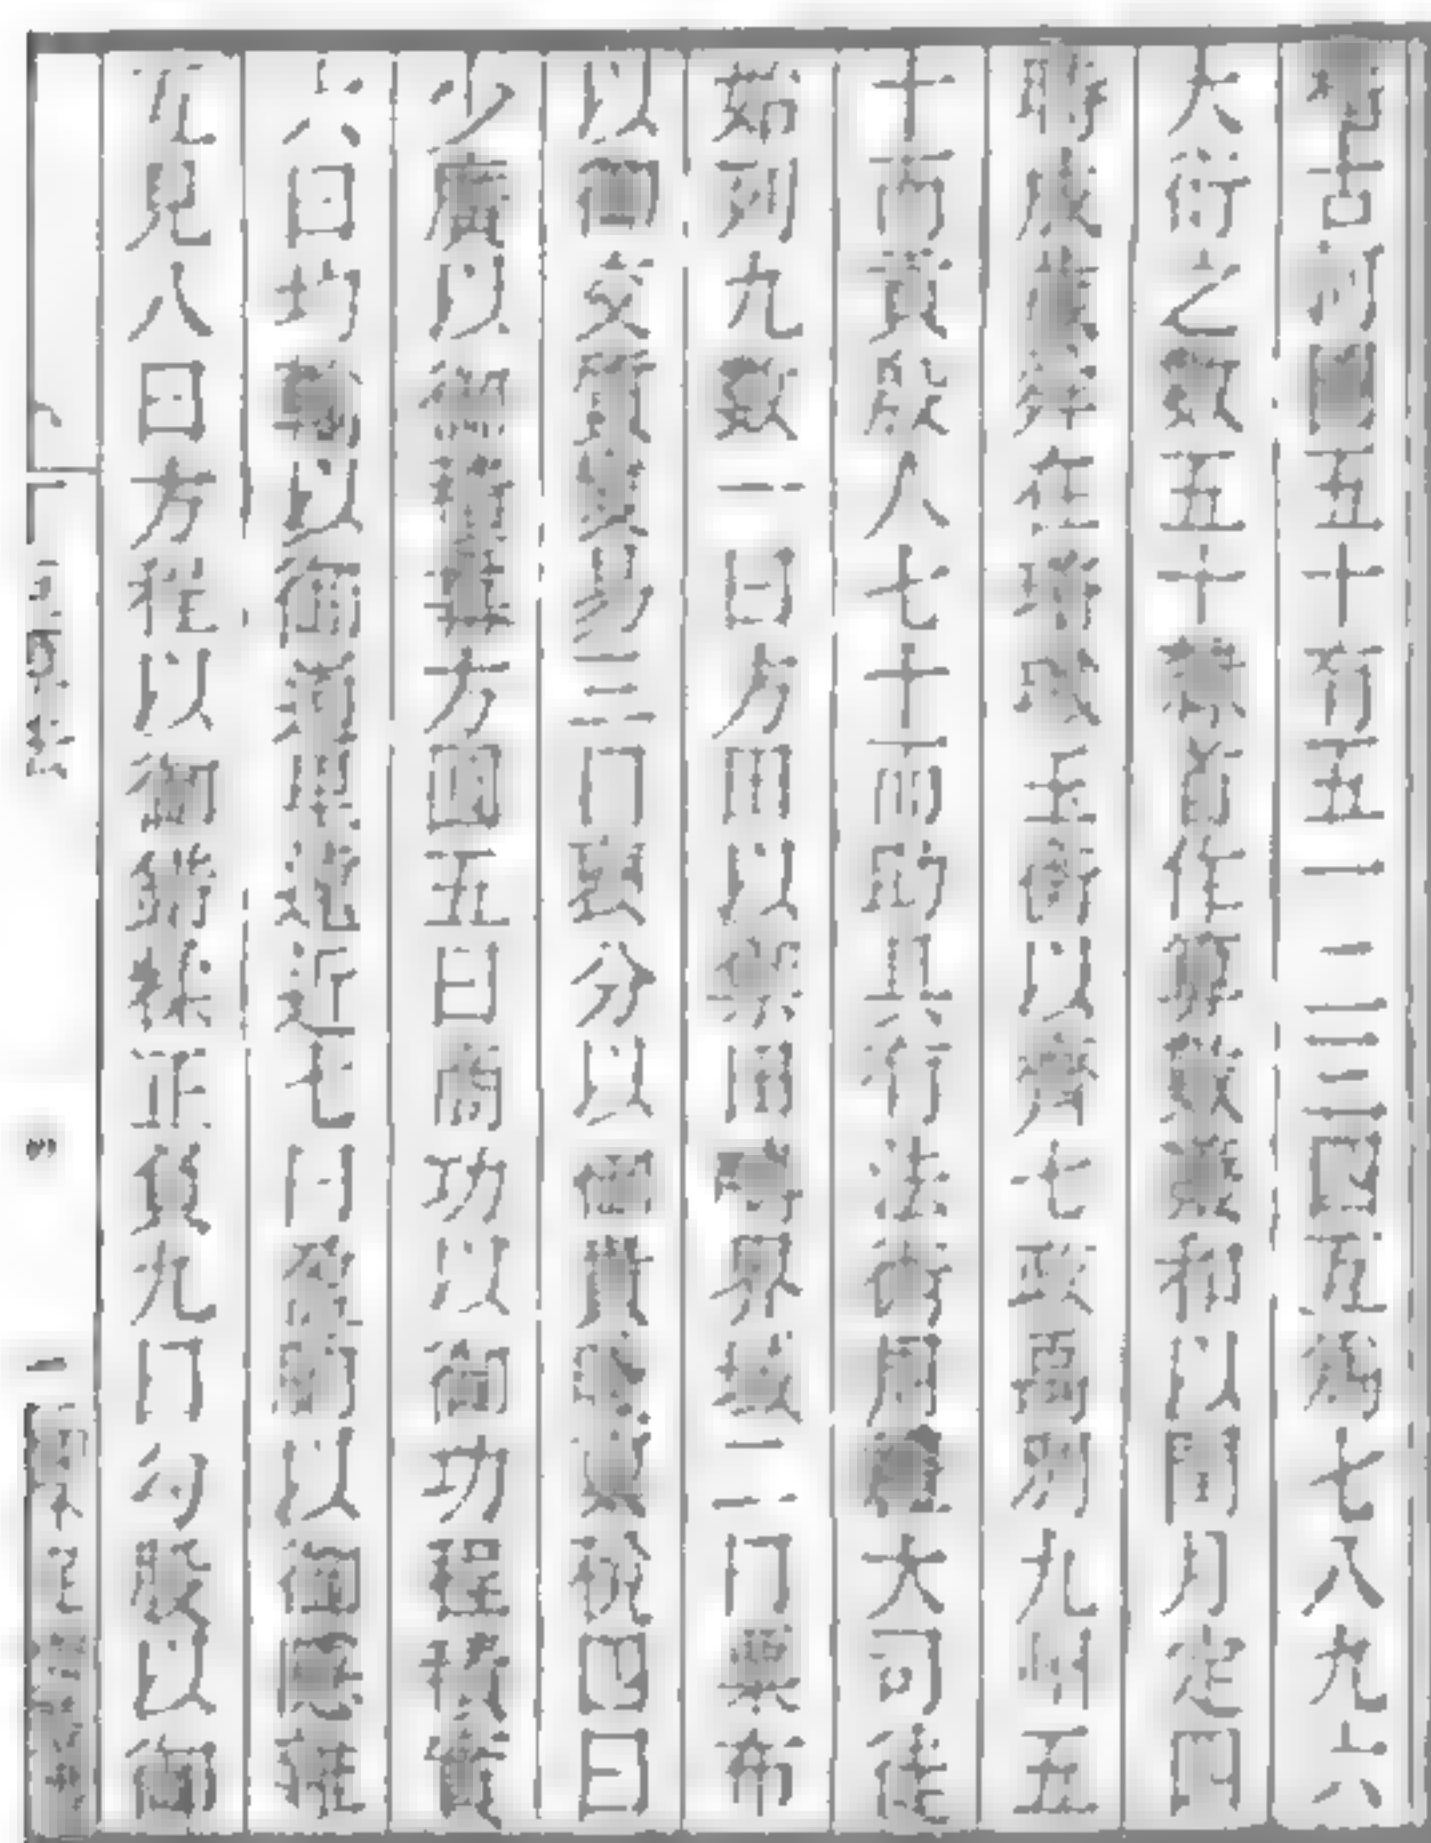 稽古河圖五十有五一二三四互為七八九六
大衍之數五十隸首作算數羲和以閏月定四
時成歲舜在璿璣玉衡以齊七政禹別九州五
十而貢殷人七十而助其行法術周禮大司徒
茹列九數一曰方田以御田疇界域二門粟布
以御交質變易三門裒分以御貴賤稅四曰
少廣以御積冪方圓五曰商功以御功程積實
六曰均輸以御遠近七門盈朒以御隱雜
互見八曰方程以御錯糅正負九門勾股以御